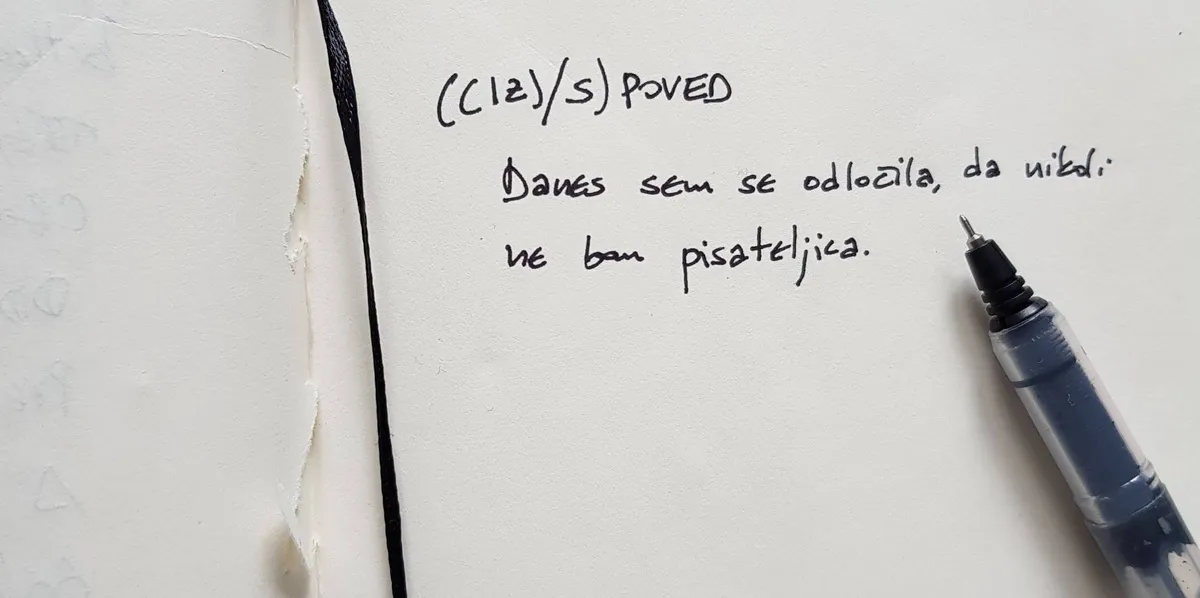 ((IZ)/S) POVED
Danes sem se odločila, da nikoli
ne bom pisateljica.